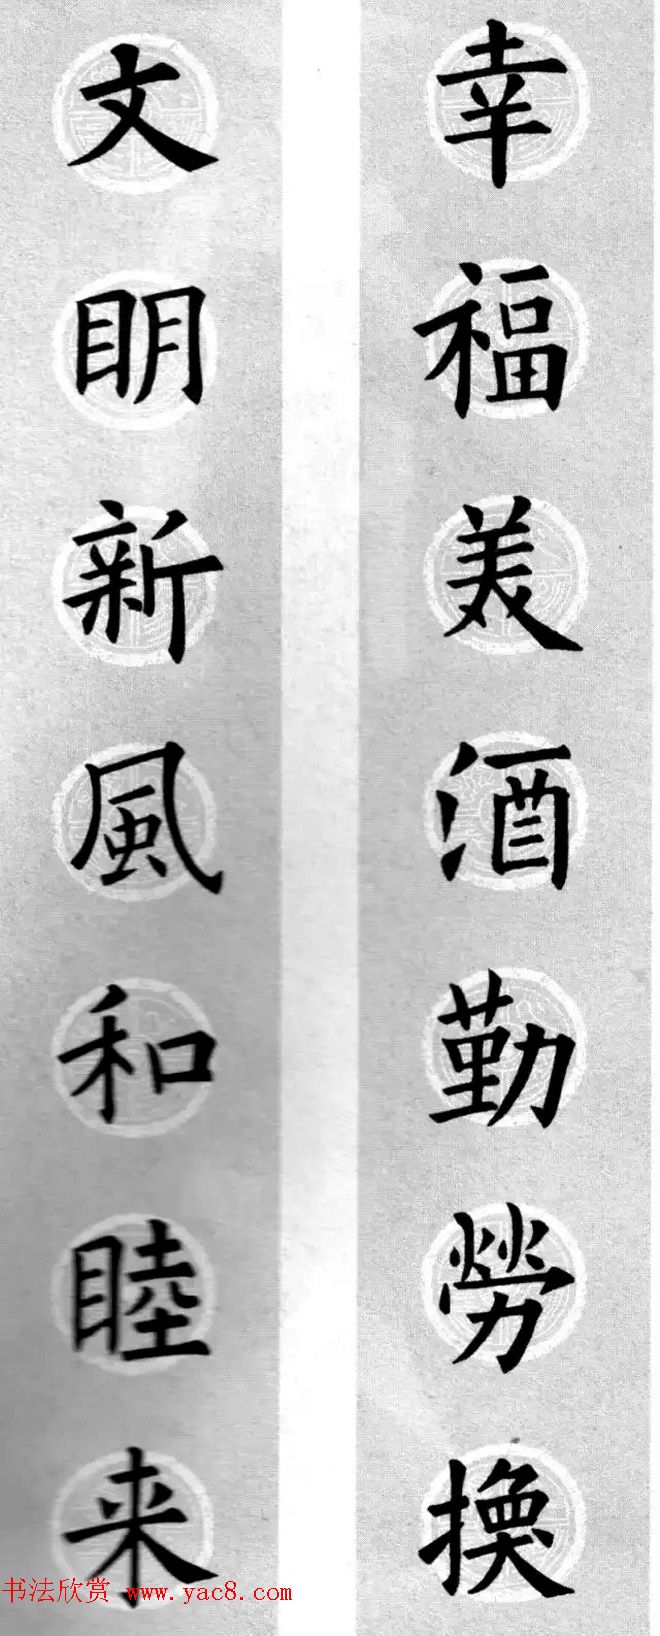 幸福美酒勤勞換
文明新風和睦来
书法欣赏 www.yac8.com